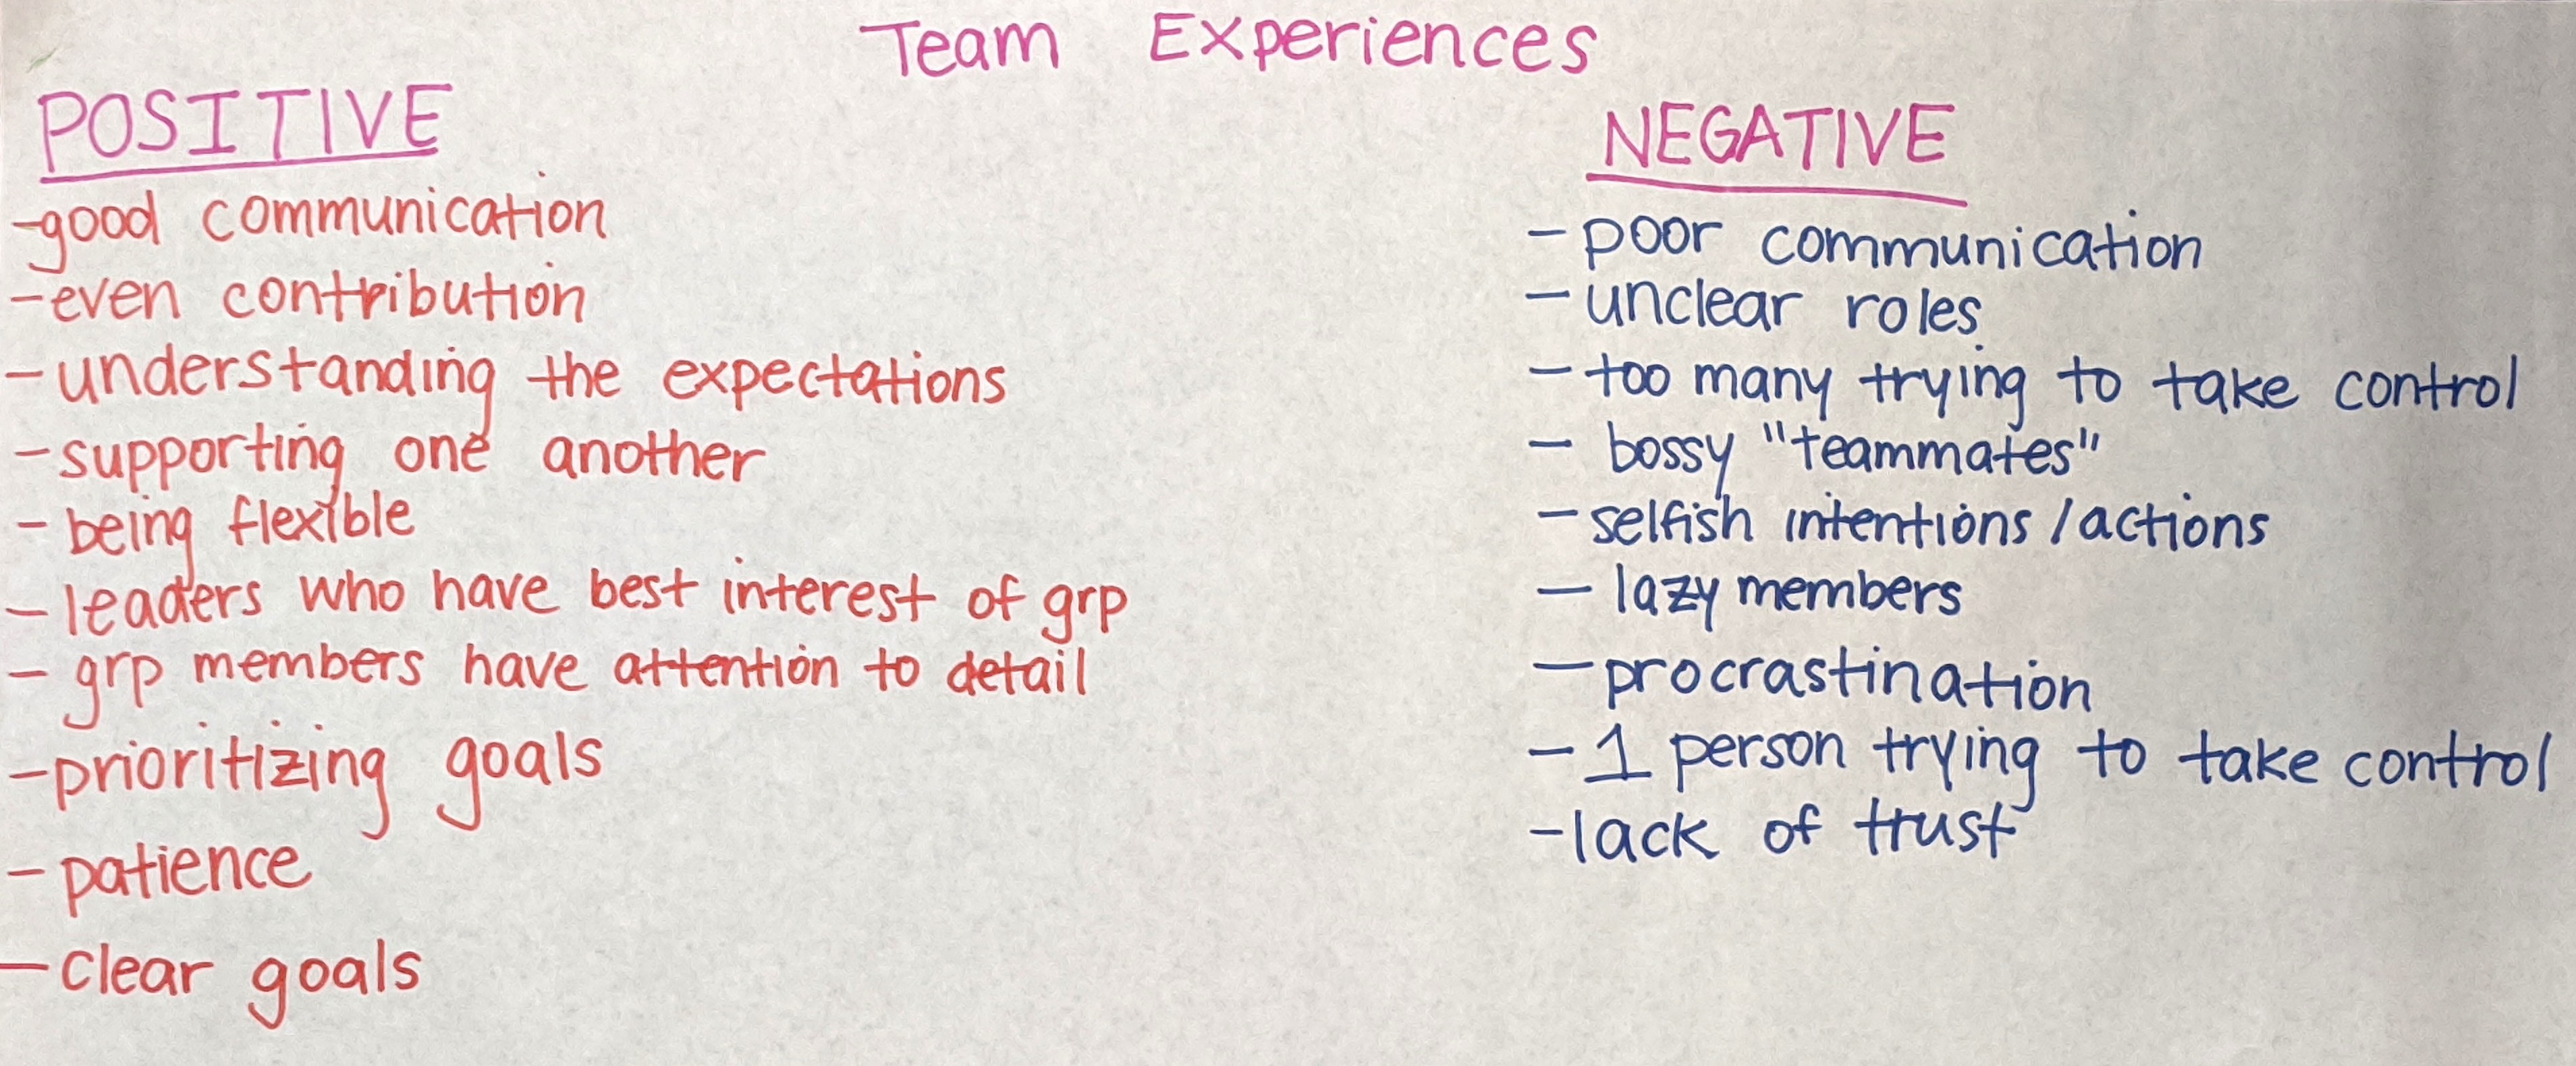 Team Experiences
POSITIVE
-good communication
-even contribution
-understanding the expectations
-supporting one another
-being flexible
-leaders who have best interest of grp
-grp members have attention to detail
-prioritizing goals
-patience
-clear goals
NEGATIVE
-poor communication
-unclear roles
-too many trying to take control
-bossy "teammates"
-selfish intentions/actions
-lazy members
-procrastination
-1 person trying to take control
-lack of trust